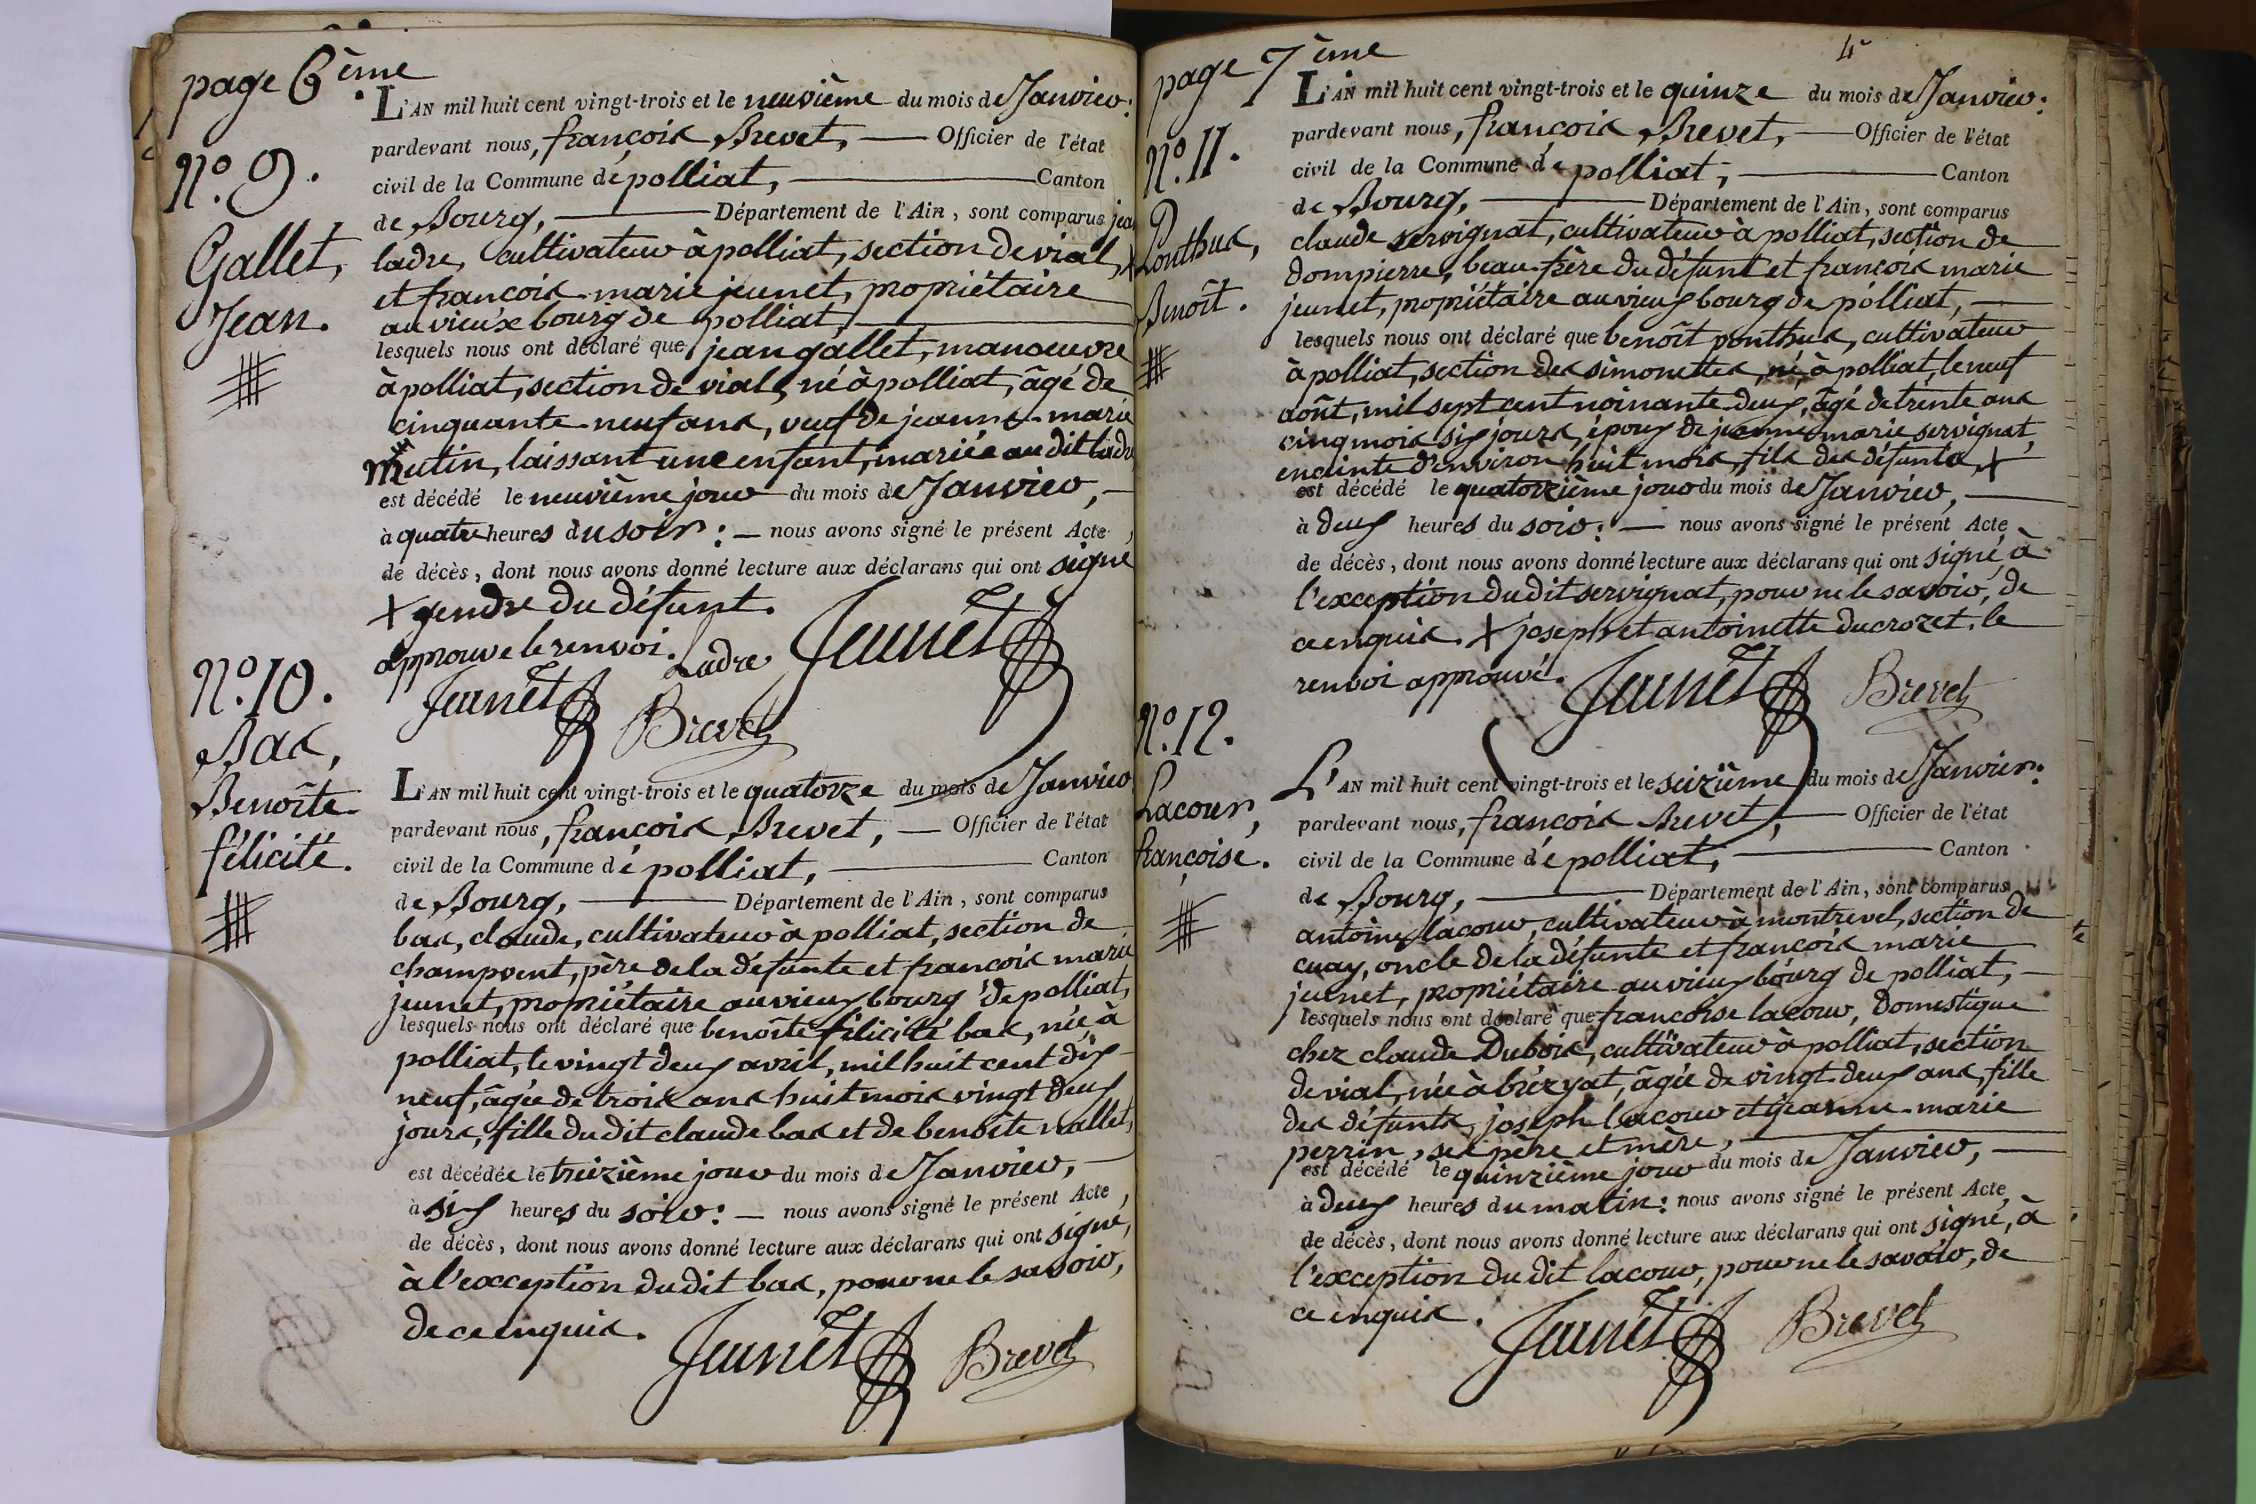 page 6ème
N.° 9.
Gallet,
Jean.
L'AN mil huit cent vingt-trois et le neuvième du mois de Janvier:
pardevant nous, françois Brevet, Officier de l'état
civil de la Commune de polliat, Canton
de Bourg, Département de l'Ain, sont comparus jean
ladre, cultivateur à polliat, section de vial, X
et françois-marie jeunet, propriétaire
au vieux bourg de polliat,
lesquels nous ont déclaré que jean gallet, manoeuvre
à polliat, section de vial, né à polliat, âgé de
cinquante-neuf ans, veuf de jeanne-marie
Mutin, laissant une enfant, mariée au dit ladre
est décédé le neuvième jour du mois de Janvier,
à quatre heures du soir: nous avons signé le présent Acte
de décès, dont nous avons donné lecture aux déclarans qui ont signé
X gendre du défunt.
approuve le renvoi. Ladre Jeunet
Jeunet Brevet
N.° 10.
Bas,
Benoîte
félicité.
L'AN mil huit cent vingt-trois et le quatorze du mois de Janvier
pardevant nous, françois Brevet, Officier de l'état
civil de la Commune de polliat, Canton
de Bourg, Département de l'Ain, sont comparus
bas, claude, cultivateur à polliat, section de
champvent, père de la défunte et françois marie
jeunet, propriétaire au vieux bourg de polliat,
lesquels nous ont déclaré que benoîte félicité bas, née à
polliat, le vingt deux avril, mil huit cent dix
neuf, âgée de trois ans huit mois vingt deux
jours, fille du dit claude bas et de benoîte nallet,
est décédée le treizième jour du mois de Janvier,
à six heures du soir: nous avons signé le présent Acte,
de décès, dont nous avons donné lecture aux déclarans qui ont signé,
à l'exception du dit bas, pour ne le savoir,
de ce enquis.
Jeunet Brevet
page 7ème
4e
N.° 11.
Ponthus,
Benoît.
L'AN mil huit cent vingt-trois et le quinze du mois de Janvier:
pardevant nous, françois Brevet, Officier de l'état
civil de la Commune de polliat, Canton
de Bourg, Département de l'Ain, sont comparus
claude servignat, cultivateur à polliat, section de
dompierre, beau-frère du défunt et françois marie
jeunet, propriétaire au vieux bourg de polliat,
lesquels nous ont déclaré que benoît ponthus, cultivateur
à polliat, section des simonettes, né à polliat, le neuf
août, mil sept cent noinante-deux, âgé de trente ans
cinq mois six jours, époux de jeanne marie servignat,
enceinte d'environ huit mois, fils des défunts, X
est décédé le quatorzième jour du mois de Janvier,
à deux heures du soir: nous avons signé le présent Acte
de décès, dont nous avons donné lecture aux déclarans qui ont signé, à
l'exception du dit servignat, pour ne le savoir, de
ce enquis. X joseph et antoinette ducrozet. le
renvoi approuvé.
Jeunet Brevet
N.° 12.
Lacour,
françoise.
L'AN mil huit cent vingt-trois et le seizième du mois de Janvier:
pardevant nous, françois Brevet, Officier de l'état
civil de la Commune de polliat, Canton
de Bourg, Département de l'Ain, sont comparus
antoine lacour, cultivateur à montrevel, section de
cuay, oncle de la défunte et françois marie
jeunet, propriétaire au vieux bourg de polliat,
lesquels nous ont déclaré que francoise lacour, domestique
chez claude Dubois, cultivateur à polliat, section
de vial, née à bézyat, âgée de vingt-deux ans, fille
des défunts, joseph lacour et jeanne-marie
perrin, ses père et mère,
est décédé le quinzième jour du mois de Janvier,
à deux heures du matin: nous avons signé le présent Acte
de décès, dont nous avons donné lecture aux déclarans qui ont signé, à
l'exception du dit lacour, pour ne le savoir, de
ce enquis.
Jeunet Brevet